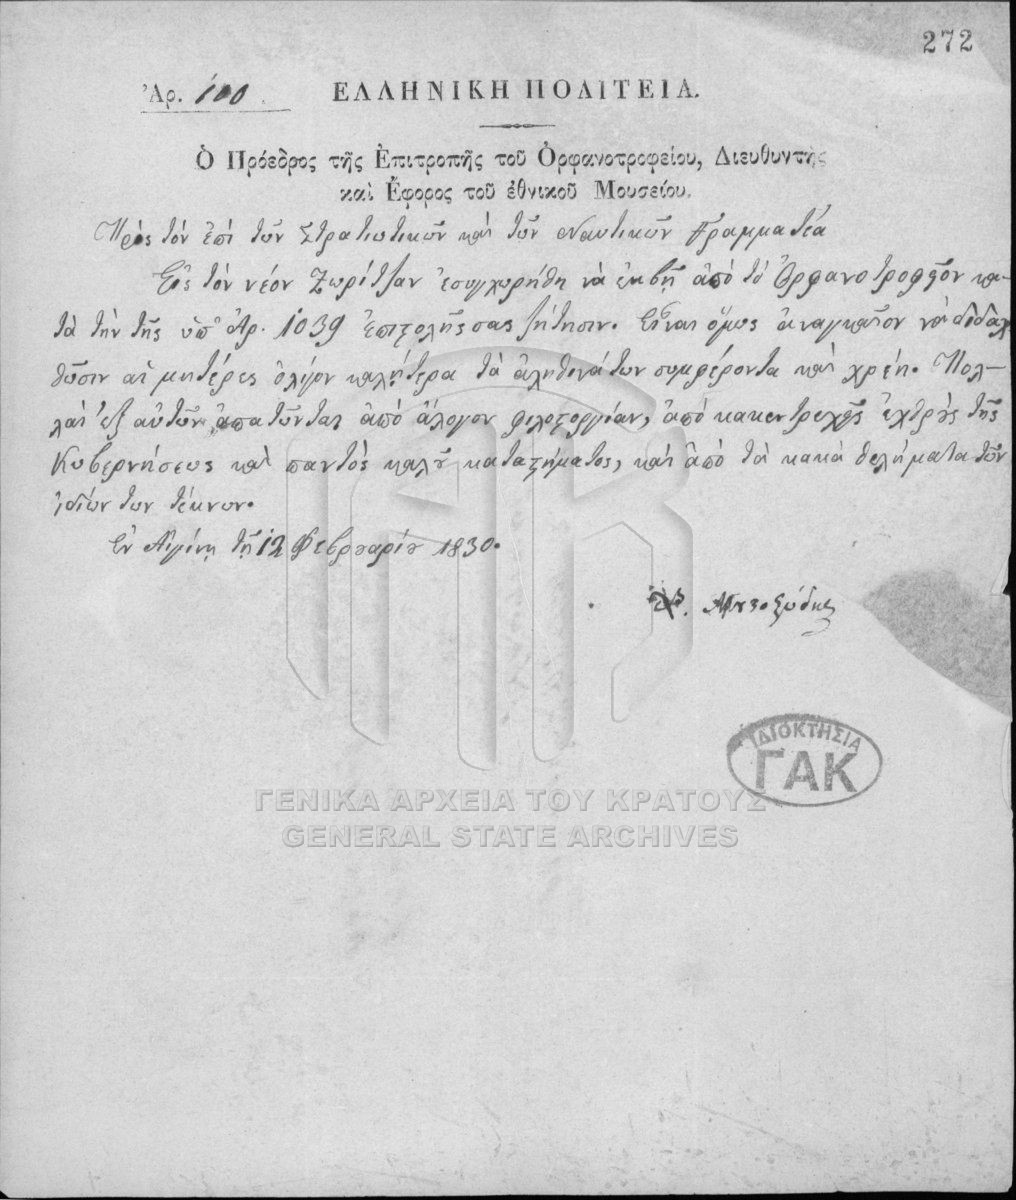 272
Ἀρ. 100
ΕΛΛΗΝΙΚΗ ΠΟΛΙΤΕΙΑ.
Ὁ Πρόεδρος τῆς Ἐπιτροπῆς τοῦ Ὀρφανοτροφείου, Διευθυντὴς
καὶ Ἔφορος τοῦ ἐθνικοῦ Μουσείου.
Πρὸς τὸν ἐπὶ τῶν Στρατιωτικῶν καὶ τῶν Ναυτικῶν Γραμματέα
Εἰς τὸν νέον Ζωρίτζαν ἐσυγχωρήθη νὰ ἐκβῇ ἀπὸ τὸ Ὀρφανοτροφεῖον κα-
τὰ τὴν τῆς ὑπ' Ἀρ. 1039 ἐπιστολῆς σας ζήτησιν. Εἶναι ὅμως ἀναγκαῖον νὰ διδαχ
θῶσιν αἱ μητέρες ὀλίγον καλήτερα τὰ ἀληθινά των συμφέροντα καὶ χρέη. Πολ-
λαὶ ἐξ αὐτῶν ἀπατῶνται ἀπὸ ἄλογον φιλοστοργίαν, ἀπὸ κακεντρεχεῖς ἐχθροὺς τῆς
Κυβερνήσεως καὶ παντὸς καλοῦ καταστήματος, καὶ ἀπὸ τὰ κακὰ θελήματα τῶν
ἰδίων των τέκνων.
Ἐν Αἰγίνῃ τῇ 12 Φεβρουαρίου 1830.
Μουστοξύδης
ΙΔΙΟΚΤΗΣΙΑ
ΓΑΚ
ΓΕΝΙΚΑ ΑΡΧΕΙΑ ΤΟΥ ΚΡΑΤΟΥΣ
GENERAL STATE ARCHIVES